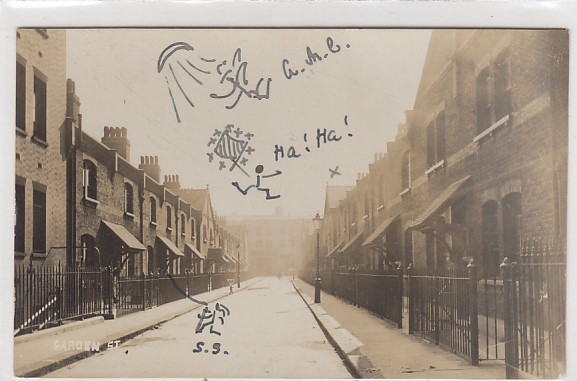 a.M.C.
Ha! Ha!
x
S.S.
GARDEN ST.